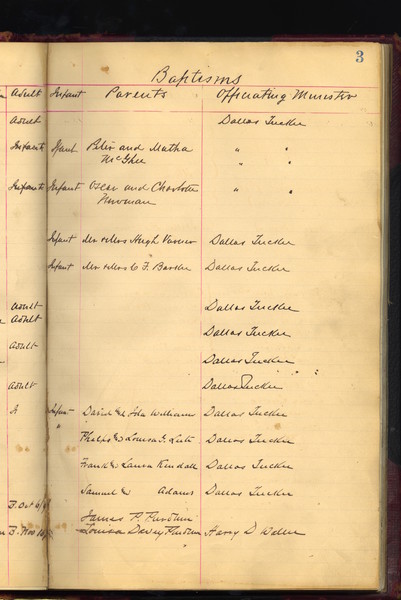 3
Baptisms
Adult Infant Parents Officiating Minister
Adult Dallas Tucker
Infants Infant Peter and Martha McGhee " "
Infants Infant Oscar and Charlotte Newman " "
Infant Mr & Mrs Hugh Dallas Tucker
Infant Mr & Mrs C F. Barker Dallas Tucker
Adult Dallas Tucker
Adult Dallas Tucker
Adult Dallas Tucker
Adult Dallas Tucker
A Infant David & Ida Williams Dallas Tucker
" Phelps & Louisa Dallas Tucker
Frank & Laura Kendall Dallas Tucker
Samuel & Adams Dallas Tucker
B. Oct
James P.
B. Nov Louisa Harry D